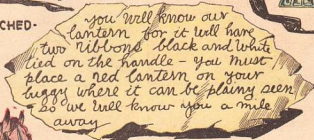 CHED-
you will know our
lantern for it will have
two ribbons black and white
tied on the handle - you must
place a red lantern on your
buggy where it can be plainy seen
so we will know you a mile
away